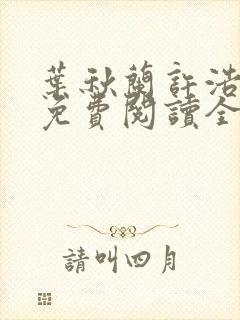 葉秋蘭許浩
免費閱讀全
請叫四月